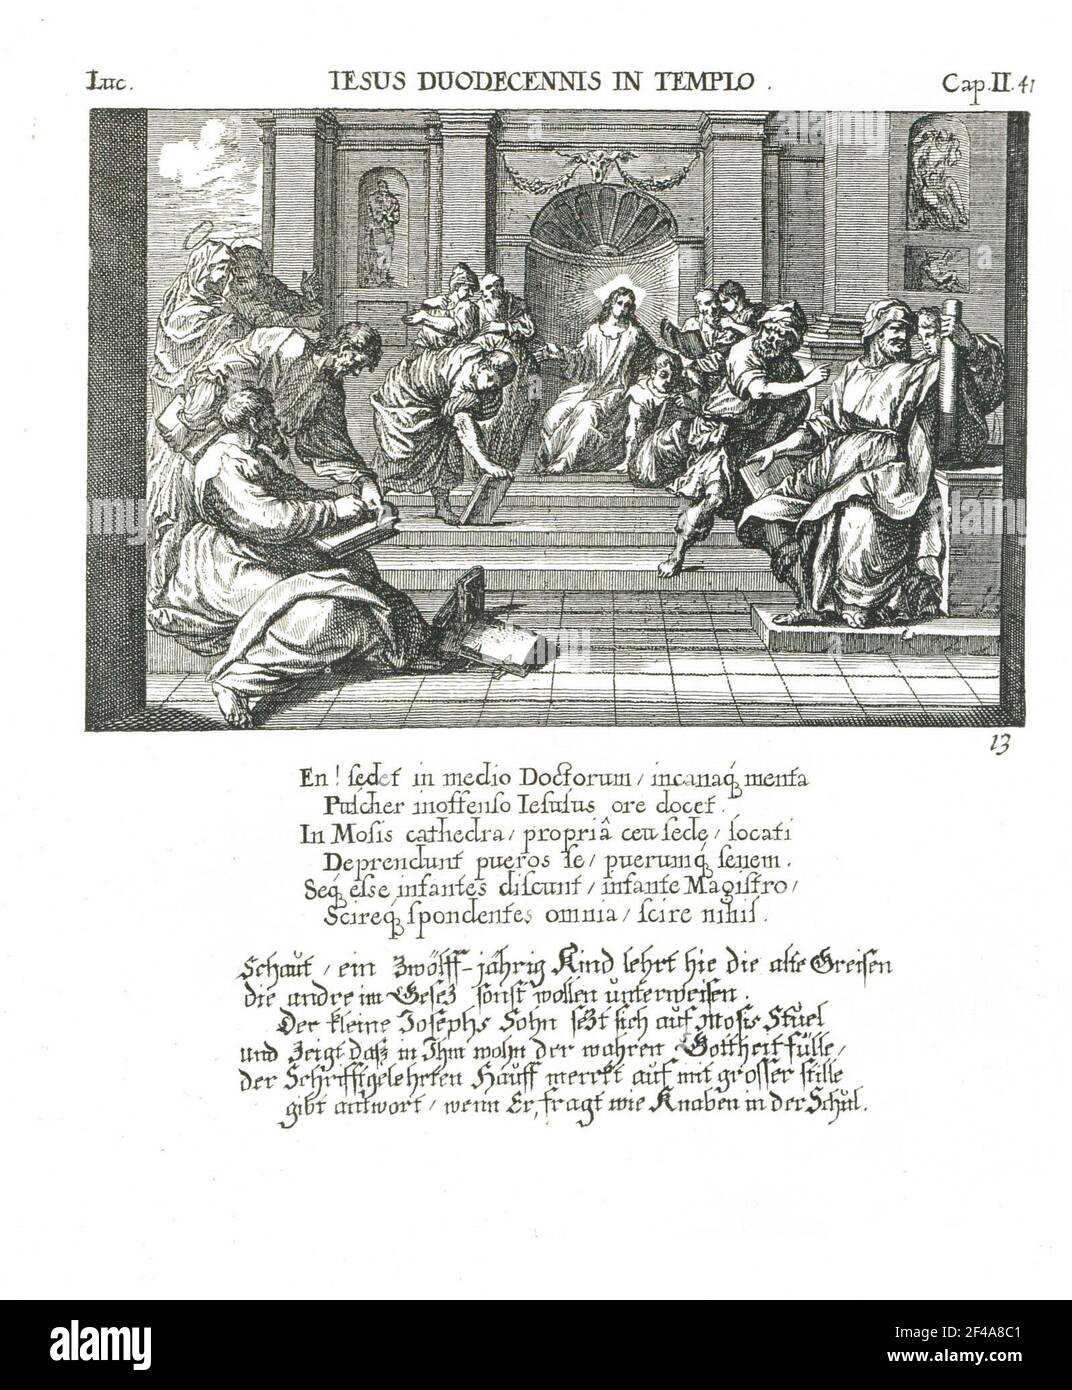 Luc. IESUS DUODECENNIS IN TEMPLO. Cap. II. 41
13
En! sedet in medio Doctorum/ incanaq́ menta
Pulcher inoffenso Iesulus ore docet.
In Mosis cathedra/ propriâ ceu sede/ locati
Deprendunt pueros se/ puerumq́ senem.
Seq́ esse infantes discunt/ infante Magistro/
Scireq́ spondentes omnia/ scire nihil.
Schaut/ ein Zwölff-jährig Kind lehrt hie die alte Greisen
die andre im Gesez sonst wollen unterweisen.
Der kleine Josephs Sohn sezt sich auf Mosis Stuel
und Zeigt daß in Ihm wohn der wahren Gottheit fülle/
der Schrifftgelehrten Hauff merckt auf mit grosser stille
gibt antwort/ wenn Er, fragt wie Knaben in der Schul.
alamy
Image ID: 2F4A8C1
www.alamy.com